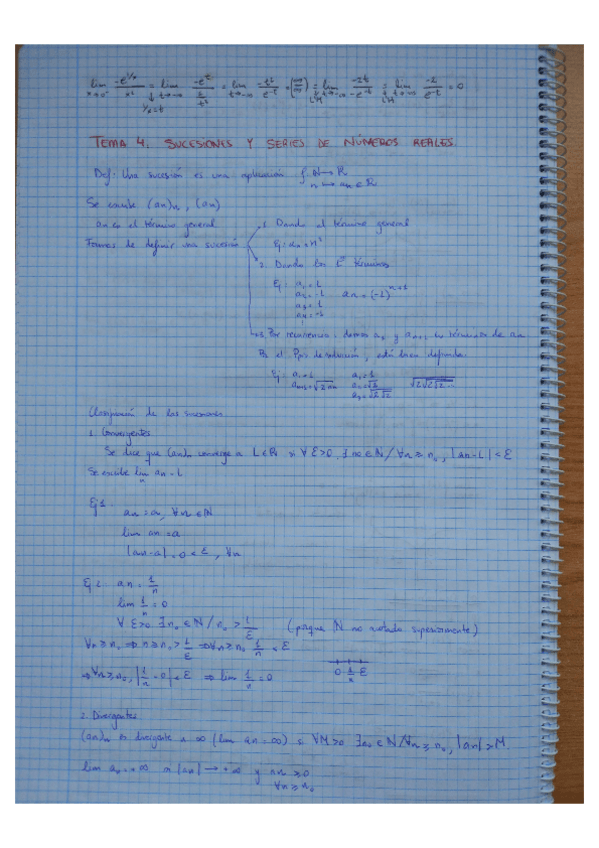 lim x→0⁻ -e^{1/x}/x² = lim t→-∞ -e^t/(1/t²) = lim t→-∞ -t²/e^{-t} = (∞/∞) = lim t→-∞ -2t/-e^{-t} = lim t→-∞ -2/e^{-t} = 0
1/x = t L'H L'H
TEMA 4. SUCESIONES Y SERIES DE NÚMEROS REALES.
Def: Una sucesión es una aplicación f: N → R
n ↦ an ∈ R
Se escribe (an)n, (an)
an es el término general
Formas de definir una sucesión
1. Dando el término general
Ej: an = n²
2. Dando los 1os términos
Ej: a1 = 1
a2 = -1 an = (-1)^{n+1}
a3 = 1
a4 = -1
3. Por recurrencia: damos a1 y an+1 en términos de an
Por el Ppio de inducción, está bien definida
Ej: a1 = 1 a1 = 1
an+1 = √2an a2 = √2 √2√2√2...
a3 = √2√2
Clasificación de las sucesiones
1. Convergentes
Se dice que (an)n converge a L ∈ R si ∀ε>0, ∃n0 ∈ N / ∀n ≥ n0, |an-L| < ε
Se escribe lim n an = L
Ej 1: an = a, ∀n ∈ N
lim an = a
|an-a| = 0 < ε, ∀n
Ej 2: an = 1/n
lim 1/n = 0
∀ε>0 ∃n0 ∈ N / n0 > 1/ε (porque N no acotado superiormente)
∀n ≥ n0 ⇒ n ≥ n0 > 1/ε ⇒ ∀n ≥ n0 1/n < ε
0 1/n ε
⇒ ∀n ≥ n0, |1/n - 0| < ε ⇒ lim 1/n = 0
2. Divergentes
(an)n es divergente a ∞ (lim an = ∞) si ∀M>0 ∃n0 ∈ N / ∀n ≥ n0, |an| > M
lim an = +∞ si |an| → +∞ y an ≥ 0
∀n ≥ n0